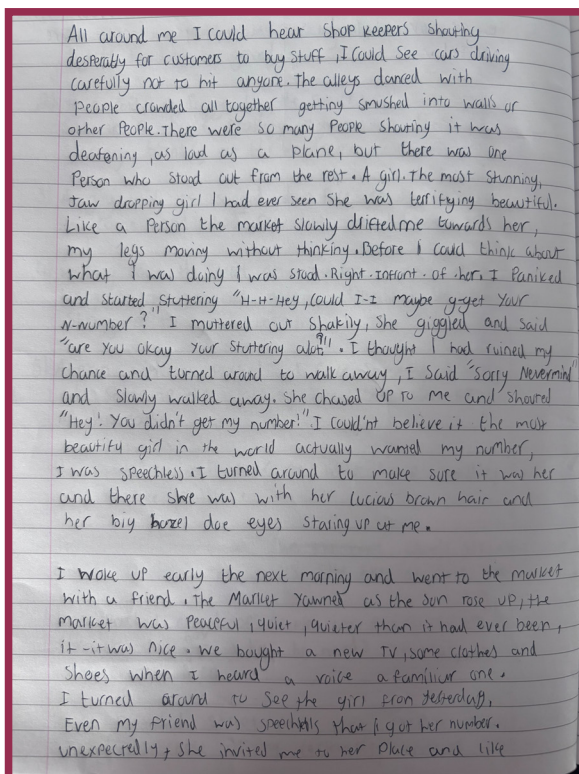 All around me I could hear shop keepers shouting
desperatly for customers to buy stuff, I could see cars driving
carefully not to hit anyone. The alleys danced with
people crowded all together getting smushed into walls or
other people. There were so many people shouting it was
deafening, as loud as a plane, but there was one
person who stood out from the rest. A girl. The most stunning,
jaw dropping girl I had ever seen she was terrifying beautiful.
Like a person the market slowly drifted me towards her,
my legs moving without thinking. Before I could think about
what I was doing I was stood. Right. Infront. Of. her. I Paniked
and started stuttering "H-H-Hey, could I-I maybe g-get your
N-number?" I muttered out shakily, She giggled and said
"are you okay your stuttering alot?!". I thought I had ruined my
chance and turned around to walk away, I said "Sorry Nevermind"
and slowly walked away. She chased up to me and shouted
"Hey! You didn't get my number!" I could'nt believe it the most
beautify girl in the world actually wanted my number,
I was speechless. I turned around to make sure it was her
and there she was with her lucias brown hair and
her big hazel doe eyes staring up at me.
I woke up early the next morning and went to the market
with a friend. The Market Yawned as the sun rose up, the
market was peaceful, quiet, quieter than it had ever been,
it-it was nice. We bought a new TV, some clothes and
shoes when I heard a voice a familiur one.
I turned around to see the girl from yesterday,
Even my friend was speechels that I got her number.
unexpectedly, she invited me to her place and like